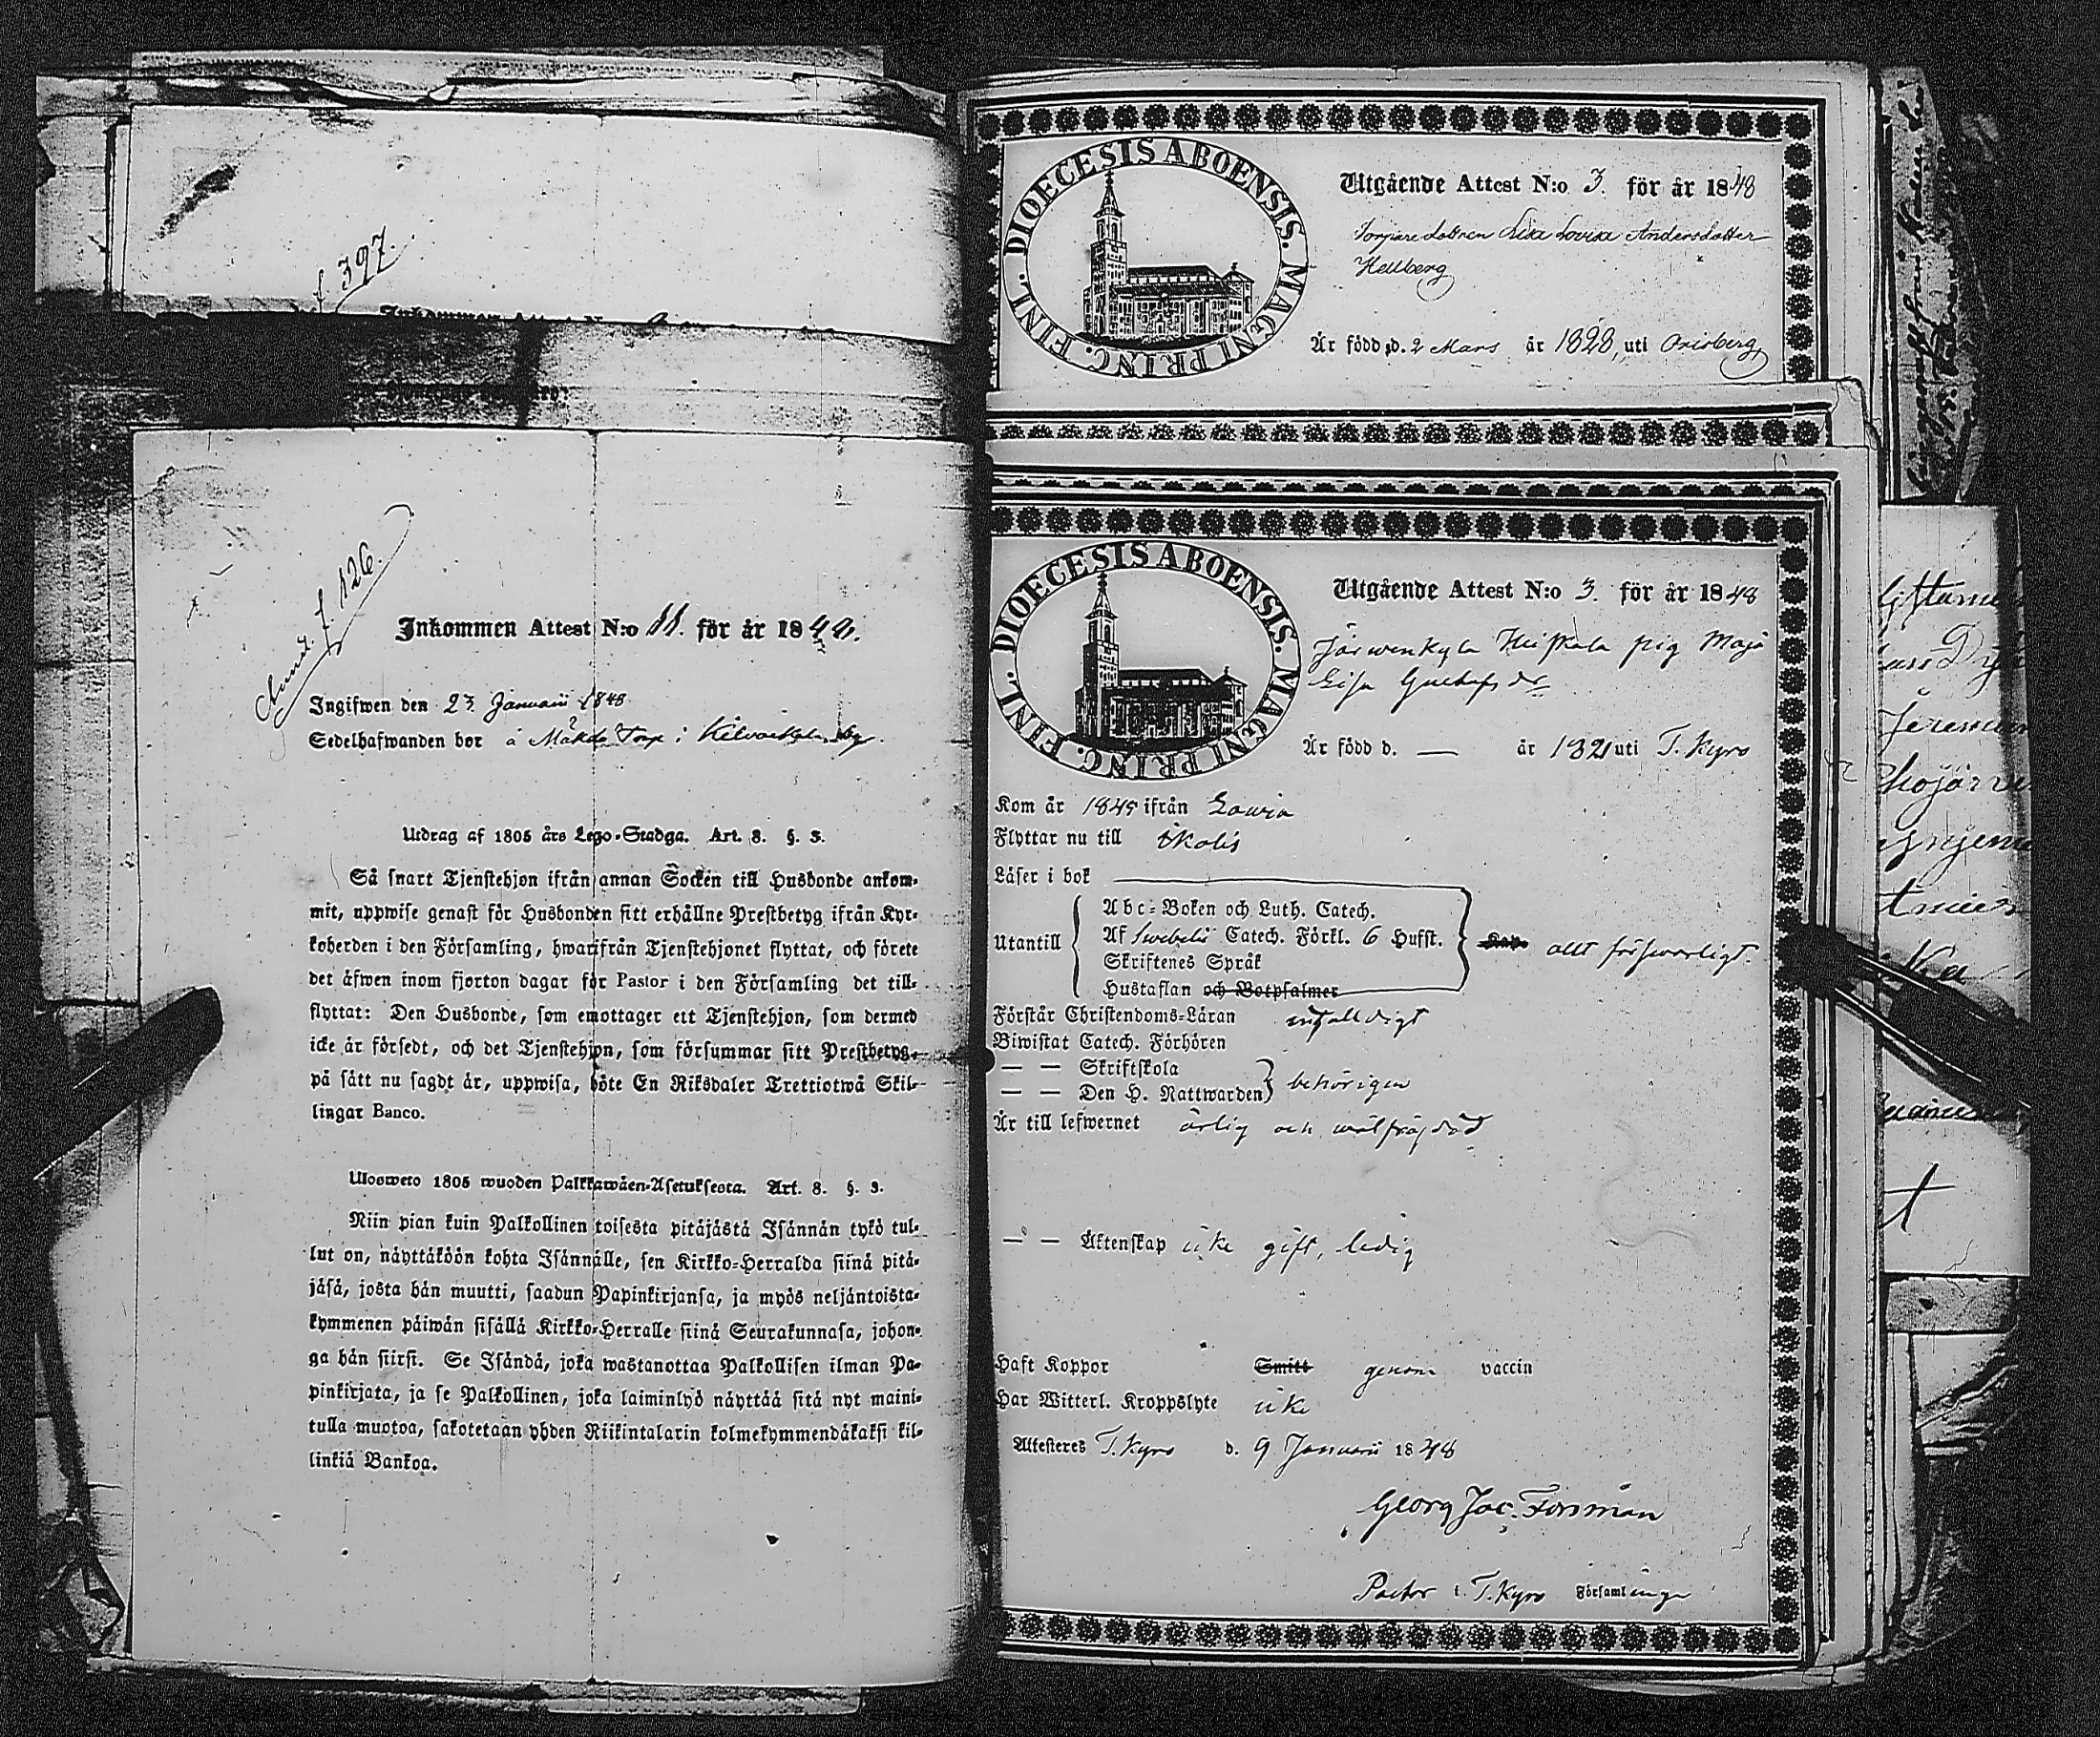 f. 397.
Amd. f. 126.
Inkommen Attest N:o 11. för år 1848.
Ingifwen den 23 Januarii 1848
Sedelhafwanden bor å Måkda Torp i by.
Utdrag af 1805 års Lego-Stadga. Art. 8. §. 3.
Så snart Tjenstehjon ifrån annan Socken till Husbonde ankom-
mit, uppwise genast för Husbonden sitt erhållne Prestbetyg ifrån Kyr-
koherden i den Församling, hwarifrån Tjenstehjonet flyttat, och förete
det äfwen inom fjorton dagar för Pastor i den Församling det till-
flyttat: Den Husbonde, som emottager ett Tjenstehjon, som dermed
icke är försedt, och det Tjenstehjon, som försummar sitt Prestbetyg
på sätt nu sagdt är, uppwisa, böte En Riksdaler Trettiotwå Skil-
lingar Banco.
Ulosweto 1805 wuoden Palkkawäen-Asetuksesta. Art. 8. §. 3.
Niin pian kuin Palkollinen toisesta pitäjästä Isännän tykö tul-
lut on, näyttäköön kohta Isännälle, sen Kirkko-Herralda siinä pitä-
jäsä, josta hän muutti, saadun Papinkirjansa, ja myös neljäntoista-
kymmenen päiwän sisällä Kirkko-Herralle siinä Seurakunnasa, johon-
ga hän siirsi. Se Isändä, joka wastanottaa Palkollisen ilman Pa-
pinkirjata, ja se Palkollinen, joka laiminlyö näyttää sitä nyt maini-
tulla muotoa, sakotetaan yhden Riikintalarin kolmekymmendäkaksi kil-
linkiä Bankoa.
DIOECESIS ABOENSIS. MAGNI PRINC. FINL.
Utgående Attest N:o 3. för år 1848
Torpare dottren Lisa Lovisa Andersdotter
Hellberg
Är född d. 2 Mars år 1828, uti Orisberg
DIOECESIS ABOENSIS. MAGNI PRINC. FINL.
Utgående Attest N:o 3. för år 1848
Järwenkylä Heiskala pig Maja
Lisa Gustafsdr
Är född d. — år 1821 uti T. Kyro
Kom år 1845 ifrån Lawia
Flyttar nu till Ikalis
Läser i bok
Utantill
Abc-Boken och Luth. Catech.
Af Swebelii Catech. Förkl. 6 Hufst. allt försvarligt.
Skriftenes Språk
Hustaflan och Botpsalmer
Förstår Christendoms-Läran enfalldigt
Biwistat Catech. Förhören
— — Skriftskola
— — Den H. Nattwarden behörigen
Är till lefwernet ärlig och wälfräjdad
— — Äktenskap icke gift, ledig
Haft Koppor Smitt genom vaccin
Har Witterl. Kroppslyte icke
Attesteres T. Kyro d. 9 Januarii 1848
Georg Jac. Forsman
Pastor i T. Kyro Församlinge